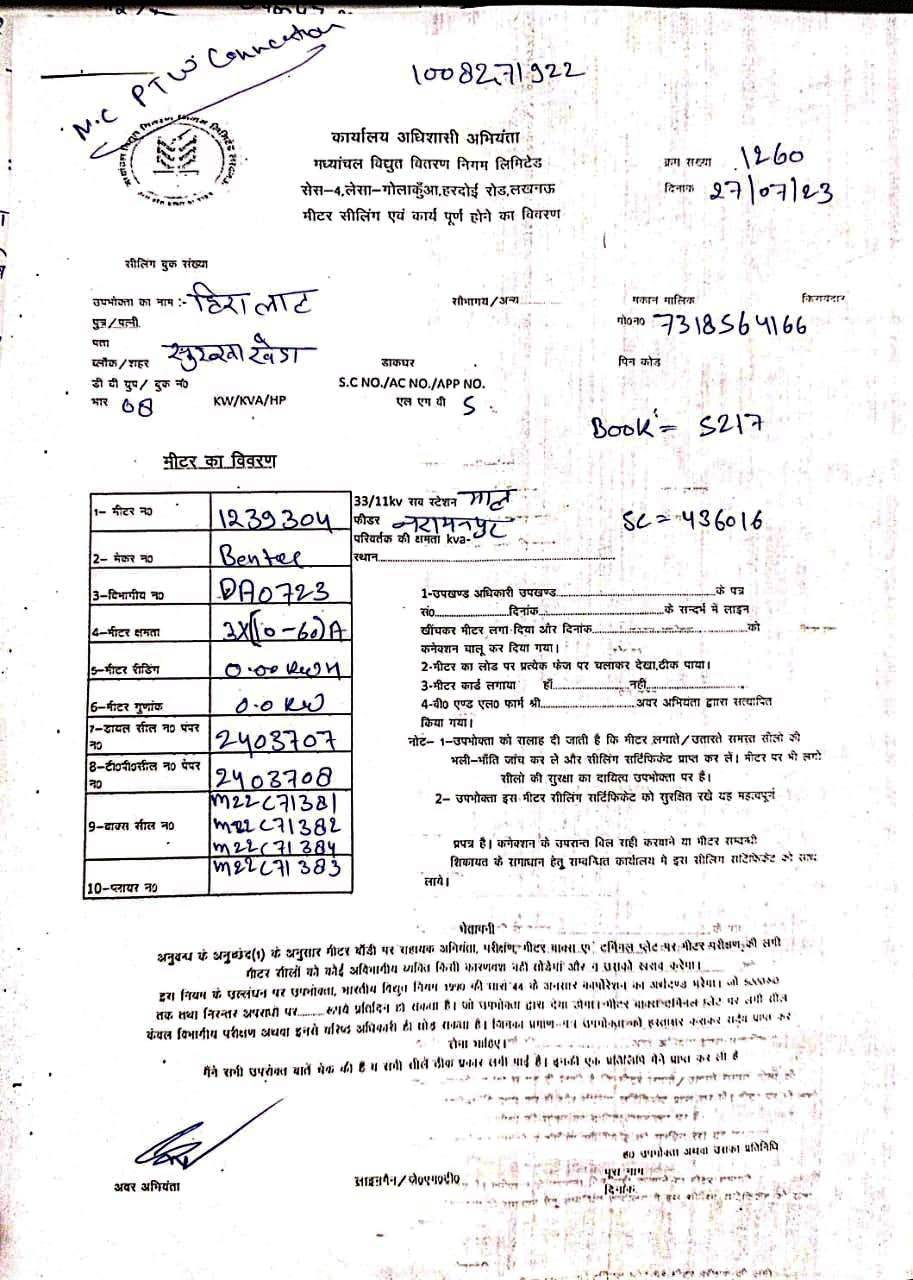 M.C PTW Connection
1008271922
कार्यालय अधिशासी अभियंता
मध्यांचल विद्युत वितरण निगम लिमिटेड
सेस-4,लेसा-गोलाकुँआ,हरदोई रोड,लखनऊ
मीटर सीलिंग एवं कार्य पूर्ण होने का विवरण
क्रम सख्या 1260
दिनाक 27/07/23
सीलिंग बुक संख्या
उपभोक्ता का नाम :- हिरा लाल सौभाग्य/अन्य मकान मालिक किरायदार
पुत्र/पत्नी मो०न० 7318564166
पता
ब्लॉक/शहर डाकघर पिन कोड
डी वी ग्रुप/ बुक न० S.C NO./AC NO./APP NO.
भार 08 KW/KVA/HP एल एम वी 5
Book = 5217
मीटर का विवरण
33/11kv सब स्टेशन माल
फीडर SC = 436016
परिवर्तक की क्षमता kva-
स्थान
1- मीटर न० 1239304
2- मेकर न० Bentec
3-विभागीय न० DA0723
4-मीटर क्षमता 3X(10-60)A
5-मीटर रीडिंग 0.00 KWH
6-मीटर गुणांक 0.0 KW
7-डायल सील न० पेपर न० 2403707
8-टी०पी०सील न० पेपर न० 2403708
9-बाक्स सील न० M22C71381
M22C71382
M22C71384
M22C71383
10-प्लायर न०
1-उपखण्ड अधिकारी उपखण्ड के पत्र
सं० दिनांक के सन्दर्भ में लाइन
खींचकर मीटर लगा दिया और दिनांक को
कनेक्शन चालू कर दिया गया।
2-मीटर का लोड पर प्रत्येक फेज पर चलाकर देखा,ठीक पाया।
3-मीटर कार्ड लगाया हाँ नहीं
4-वी० एण्ड एल० फार्म श्री अवर अभियंता द्वारा सत्यापित
किया गया।
नोट- 1-उपभोक्ता को सलाह दी जाती है कि मीटर लगाते/उतारते समस्त सीलो की
भली-भाँति जांच कर ले और सीलिंग सर्टिफिकेट प्राप्त कर लें। मीटर पर भी लगी
सीलो की सुरक्षा का दायित्व उपभोक्ता पर है।
2- उपभोक्ता इस मीटर सीलिंग सर्टिफिकेट को सुरक्षित रखे यह महत्वपूर्ण
प्रपत्र है। कनेक्शन के उपरान्त बिल सही करवाने या मीटर सम्बन्धी
शिकायत के समाधान हेतु सम्बन्धित कार्यालय मे इस सीलिंग सर्टिफिकेट को साथ
लाये।
चेतावनी
अनुबन्ध के अनुच्छेद(1) के अनुसार मीटर बॉडी पर सहायक अभियंता, परीक्षण, मीटर बाक्स एवं टर्मिनल प्लेट पर मीटर परीक्षण की लगी
मीटर सीलों को कोई अविभागीय व्यक्ति किसी कारणवश नही तोडेगा और न उसको खराब करेगा।
इस नियम के उल्लंघन पर उपभोक्ता, भारतीय विद्युत नियम 1990 की धारा 44 के अनुसार कार्पोरेशन का अर्थदण्ड भरेगा। जो
तक तथा निरन्तर अपराधी पर रूपये प्रतिदिन हो सकता है। जो उपभोक्ता द्वारा देय होगा। मीटर बाक्स टर्मिनल प्लेट पर लगी सील
केवल विभागीय परीक्षण अथवा इनसे वरिष्ठ अधिकारी ही तोड़ सकता है। जिनका प्रमाण उपभोक्ता को हस्ताक्षर कराकर प्राप्त कर
लेना चाहिए।
मैंने सभी उपरोक्त बातें चेक की है व सभी सीलें ठीक प्रकार लगी पाई है। इनकी एक प्रतिलिपि मैंने प्राप्त कर ली है
ह० उपभोक्ता अथवा उसका प्रतिनिधि
अवर अभियंता लाइनमैन/पी०एम०टी० पूरा नाम
दिनांक